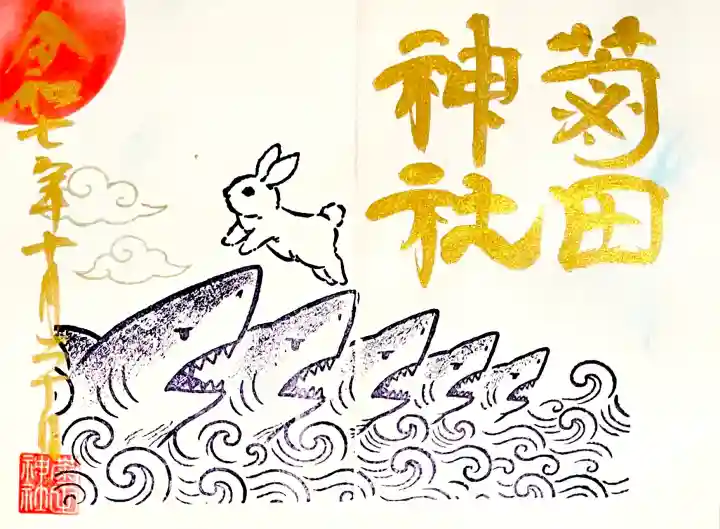 菊田
神社
令和七年十月二十日
菊田
神社